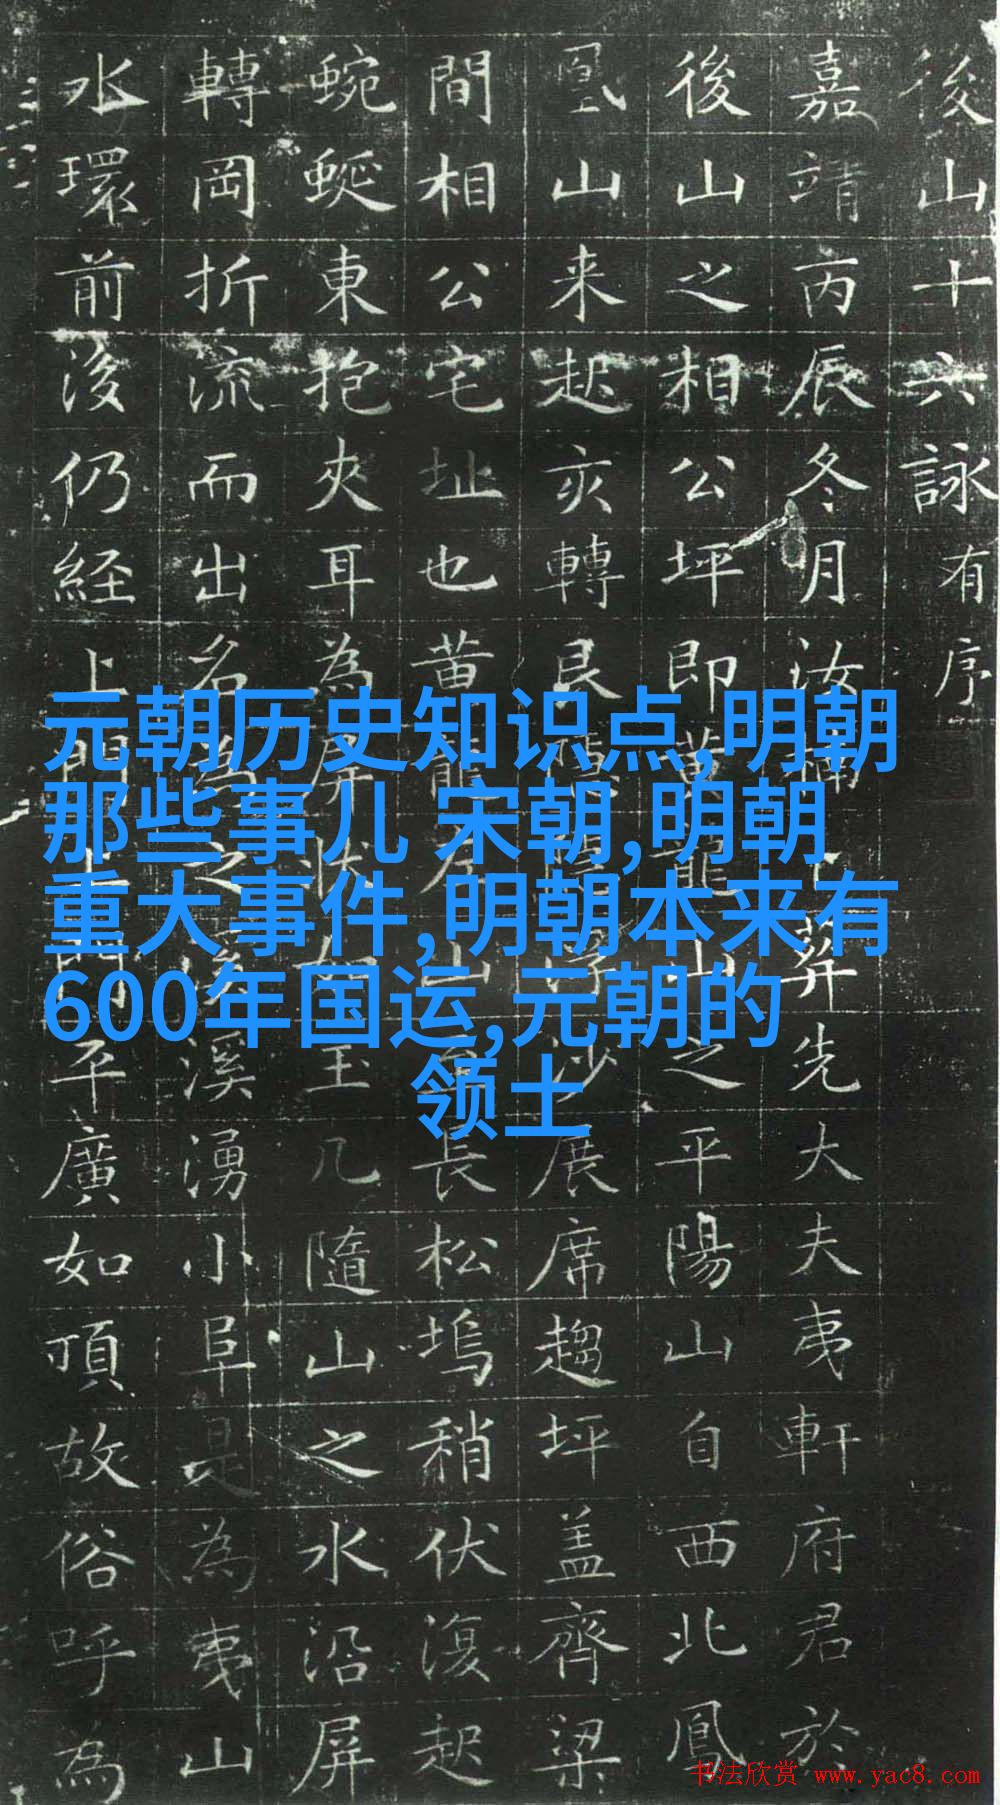 元朝历史知识点,明朝
那些事儿 宋朝,明朝
重大事件,明朝本来有
600年国运,元朝的
领土
後山十六詠有序
嘉靖丙辰冬月汝楠卜葬先大夫夷軒府君於
後山之相公坪即龍山之平陽山自西北鳳
凰山来起亥轉艮沙展席趨坪盖齊梁
間相公宅址也黄龍山長松塢稍伏復起
蜿蜒東抱夾耳為屏玉几隨山之水沿屏
轉岡折流而出名為之溪溪湧小阜是為夷山
水環前後仍経上門平廣如頂故俗呼為
书法欣赏 www.yac8.com